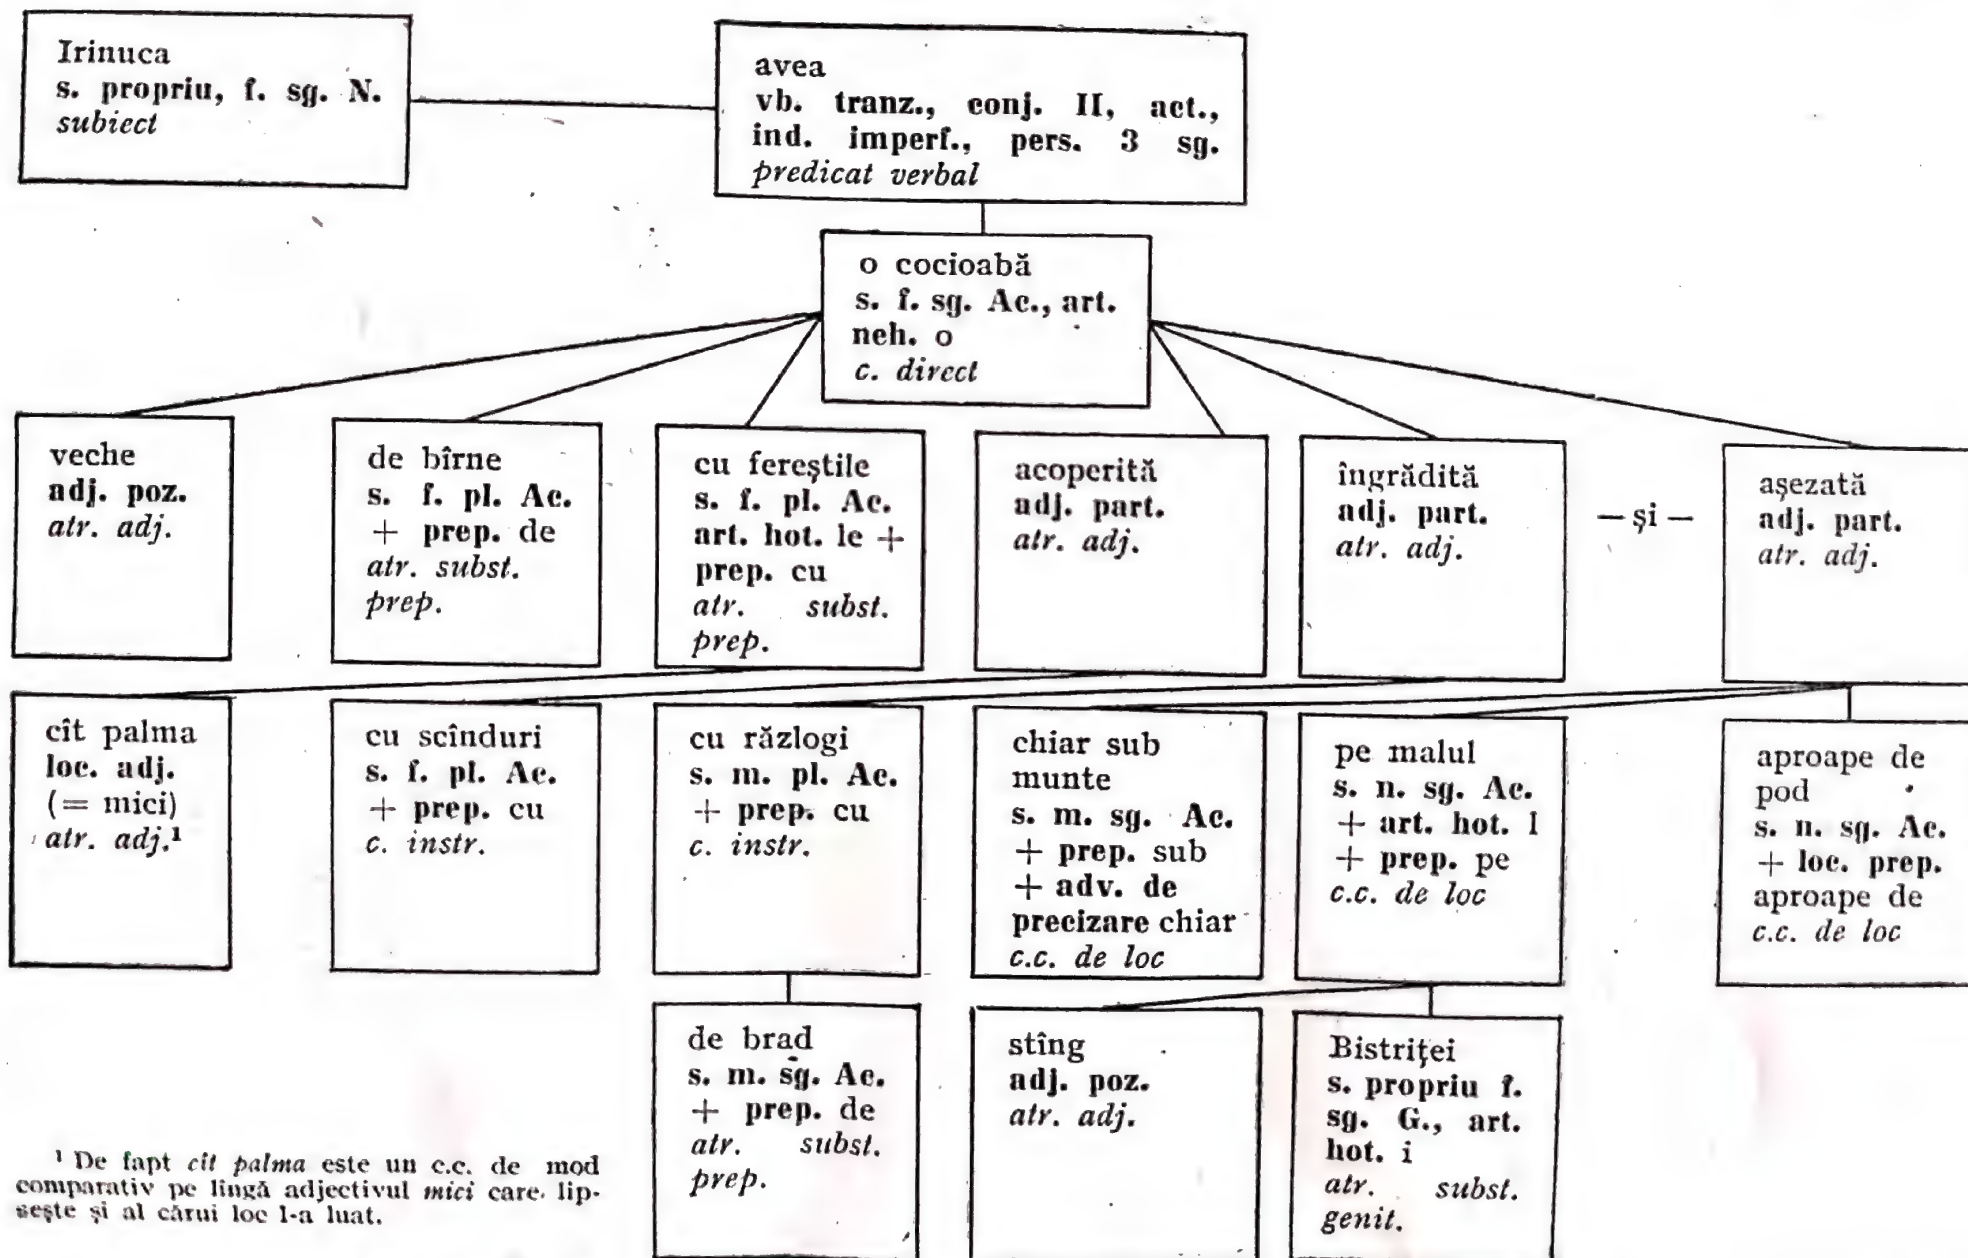 Irinuca
s. propriu, f. sg. N.
subiect
avea
vb. tranz., conj. II, act.,
ind. imperf., pers. 3 sg.
predicat verbal
o cocioabă
s. f. sg. Ac., art.
neh. o
c. direct
veche
adj. poz.
atr. adj.
de bîrne
s. f. pl. Ac.
+ prep. de
atr. subst.
prep.
cu fereştile
s. f. pl. Ac.
art. hot. le +
prep. cu
atr. subst.
prep.
acoperită
adj. part.
atr. adj.
îngrădită
adj. part.
atr. adj.
— şi —
aşezată
adj. part.
atr. adj.
cît palma
loc. adj.
(= mici)
atr. adj.¹
cu scînduri
s. f. pl. Ac.
+ prep. cu
c. instr.
cu răzlogi
s. m. pl. Ac.
+ prep. cu
c. instr.
chiar sub
munte
s. m. sg. Ac.
+ prep. sub
+ adv. de
precizare chiar
c.c. de loc
pe malul
s. n. sg. Ac.
+ art. hot. l
+ prep. pe
c.c. de loc
aproape de
pod
s. n. sg. Ac.
+ loc. prep.
aproape de
c.c. de loc
de brad
s. m. sg. Ac.
+ prep. de
atr. subst.
prep.
stîng
adj. poz.
atr. adj.
Bistriţei
s. propriu f.
sg. G., art.
hot. i
atr. subst.
genit.
¹ De fapt cît palma este un c.c. de mod
comparativ pe lîngă adjectivul mici care lip-
seşte şi al cărui loc l-a luat.